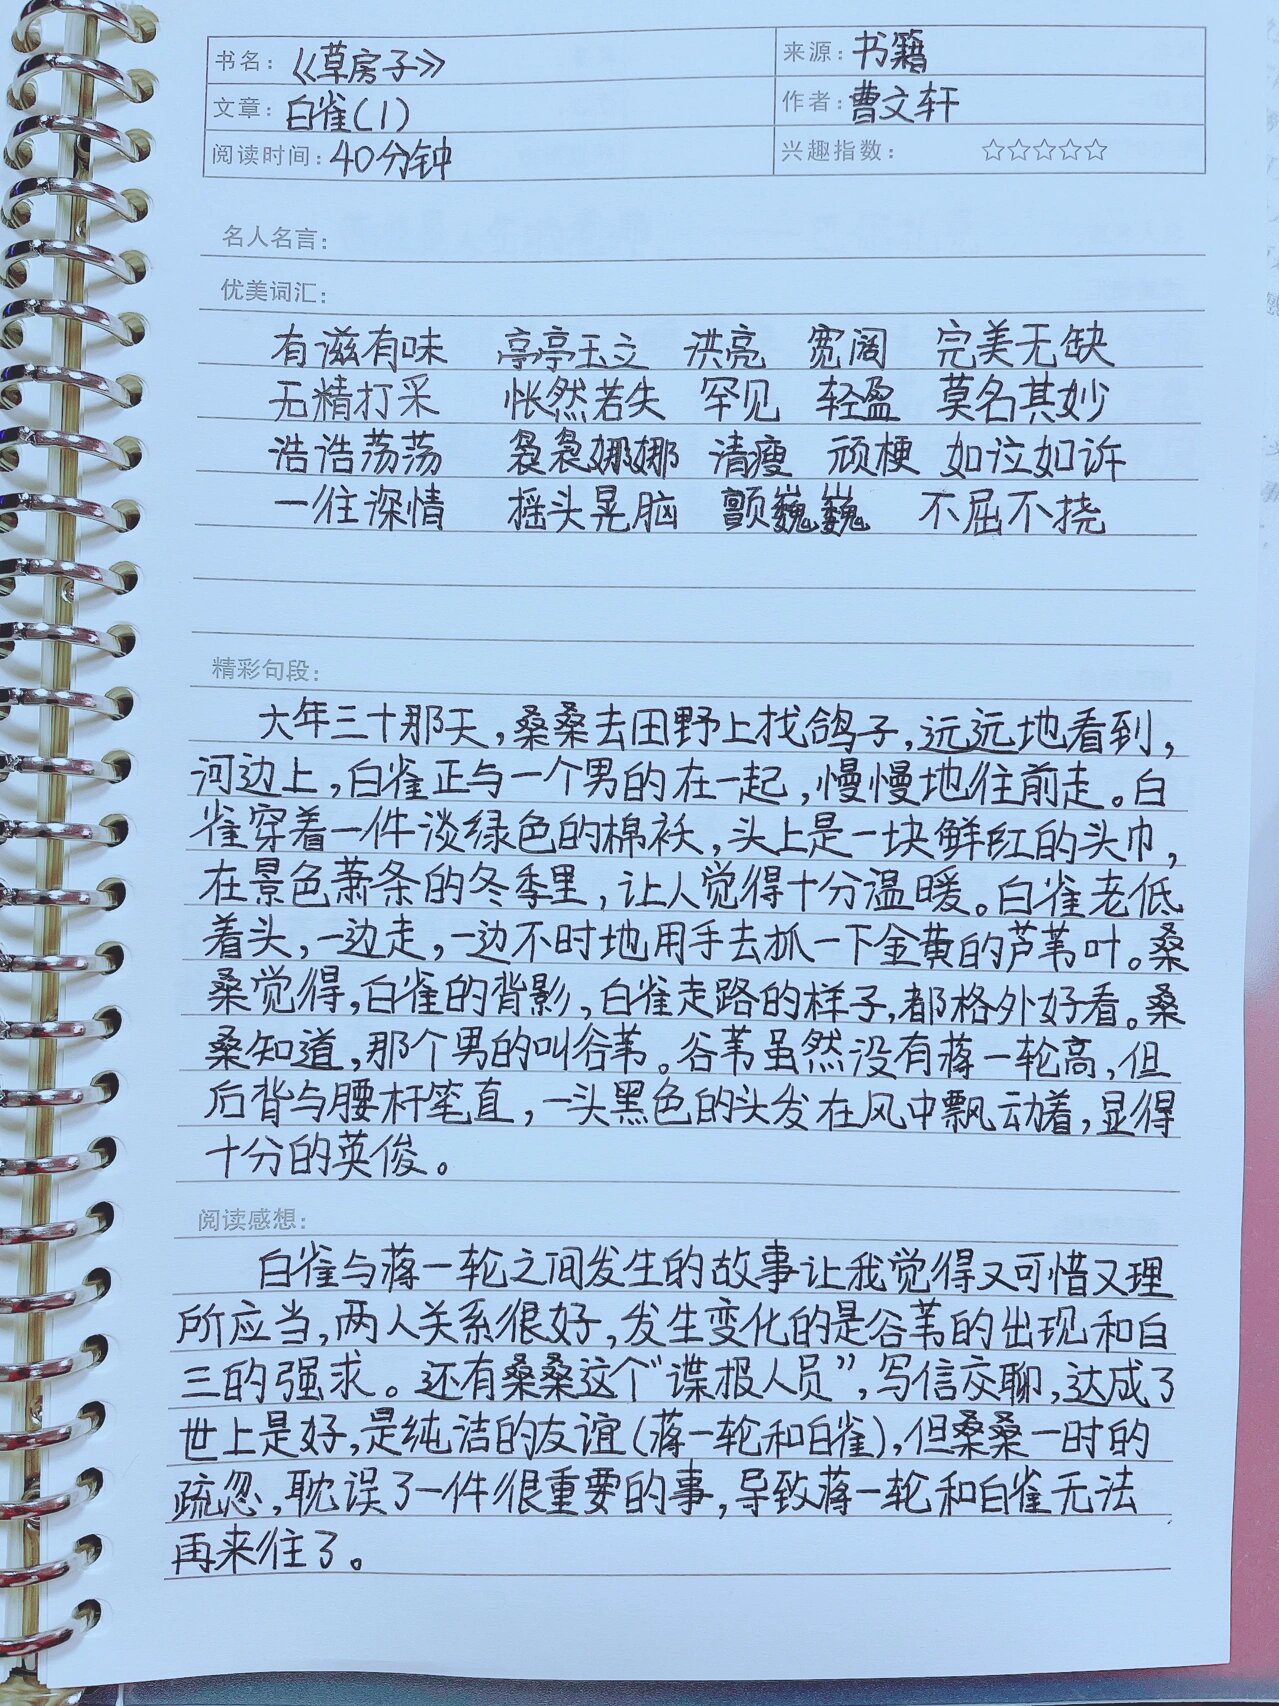 书名：《草房子》 来源：书籍
文章：白雀(1) 作者：曹文轩
阅读时间：40分钟 兴趣指数：☆☆☆☆☆
名人名言：
优美词汇：
有滋有味 亭亭玉立 洪亮 宽阔 完美无缺
无精打采 怅然若失 罕见 轻盈 莫名其妙
浩浩荡荡 袅袅娜娜 清瘦 顽梗 如泣如诉
一往深情 摇头晃脑 颤巍巍 不屈不挠
精彩句段：
大年三十那天，桑桑去田野上找鸽子，远远地看到，
河边上，白雀正与一个男的在一起，慢慢地往前走。白
雀穿着一件淡绿色的棉袄，头上是一块鲜红的头巾，
在景色萧条的冬季里，让人觉得十分温暖。白雀老低
着头，一边走，一边不时地用手去抓一下金黄的芦苇叶。桑
桑觉得，白雀的背影，白雀走路的样子，都格外好看。桑
桑知道，那个男的叫谷苇。谷苇虽然没有蒋一轮高，但
后背与腰杆笔直，一头黑色的头发在风中飘动着，显得
十分的英俊。
阅读感想：
白雀与蒋一轮之间发生的故事让我觉得又可惜又理
所应当，两人关系很好，发生变化的是谷苇的出现和白
三的强求。还有桑桑这个“谍报人员”，写信交聊，达成了
世上是好，是纯洁的友谊(蒋一轮和白雀)，但桑桑一时的
疏忽，耽误了一件很重要的事，导致蒋一轮和白雀无法
再来往了。